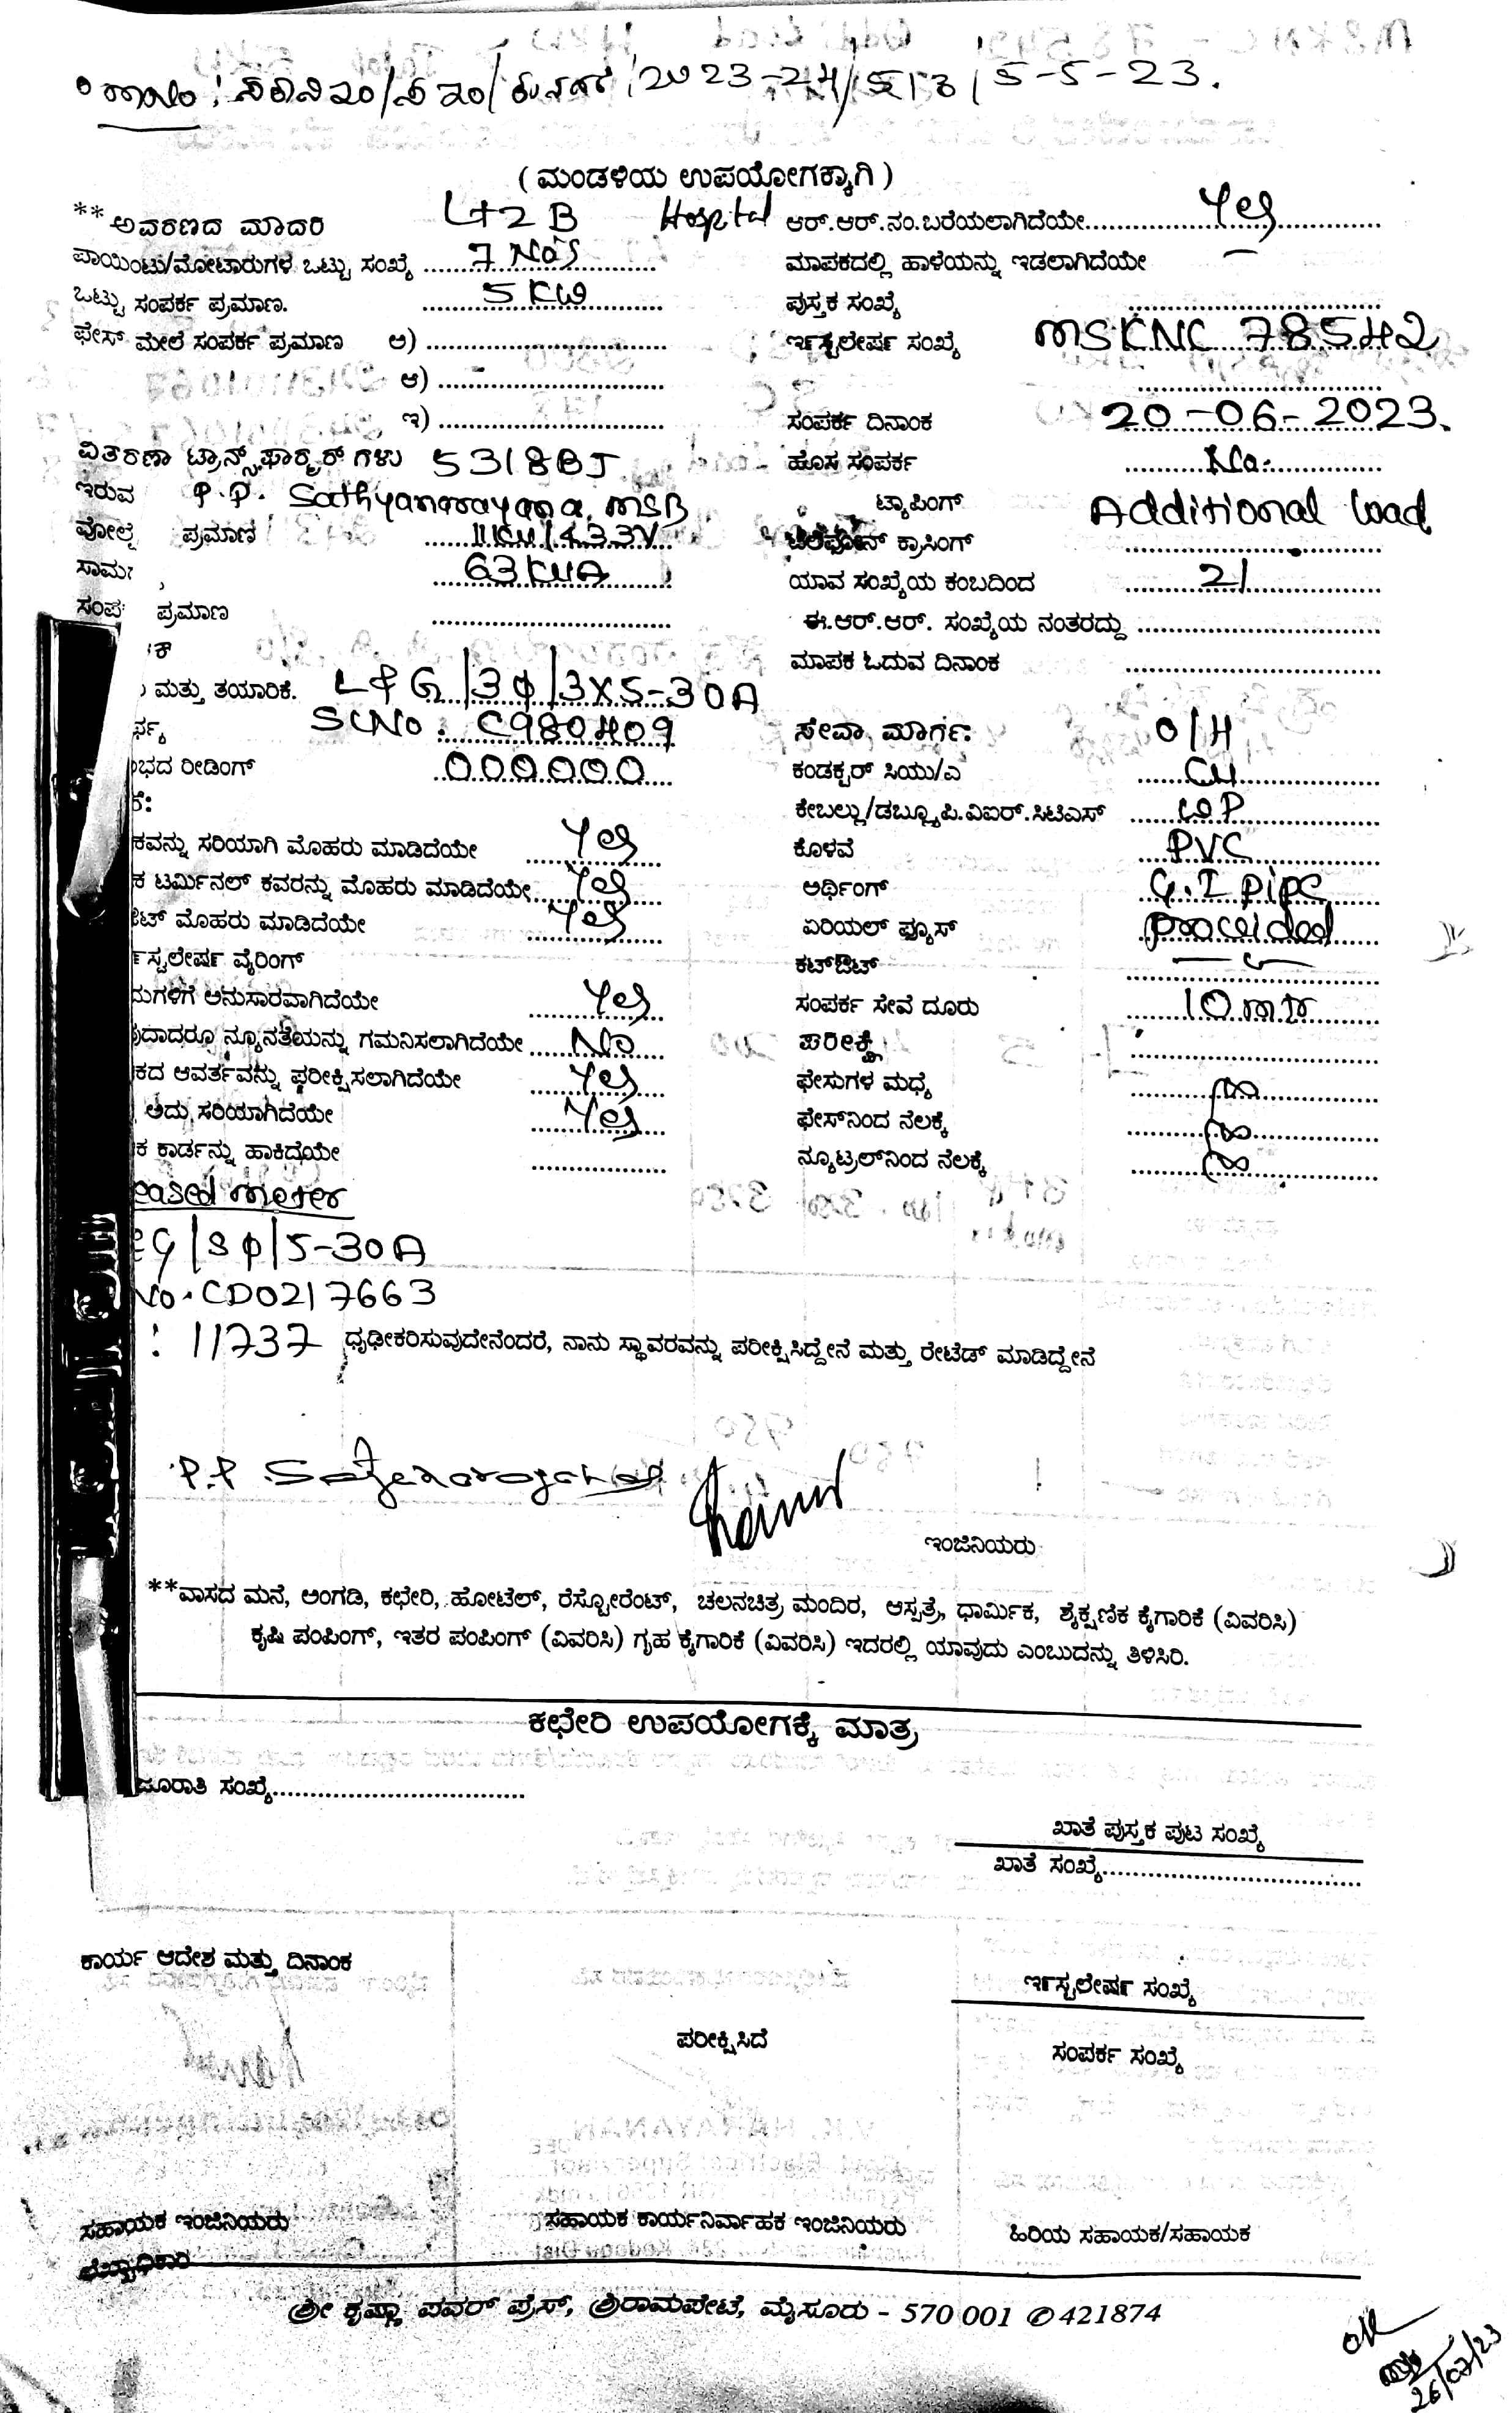 2023-24/ 5-5-23.
( ಮಂಡಳಿಯ ಉಪಯೋಗಕ್ಕಾಗಿ )
** ಆವರಣದ ಮಾದರಿ LT2B Hosptal
ಪಾಯಿಂಟು/ಮೋಟಾರುಗಳ ಒಟ್ಟು ಸಂಖ್ಯೆ ........7 No's............
ಒಟ್ಟು ಸಂಪರ್ಕ ಪ್ರಮಾಣ. ........5 KW............
ಫೇಸ್ ಮೇಲೆ ಸಂಪರ್ಕ ಪ್ರಮಾಣ ಅ) ....................
ಆ) ....................
ಇ) ....................
ವಿತರಣಾ ಟ್ರಾನ್ಸ್‌ಫಾರ್ಮರ್ ಗಳು 5318BJ
ಇರುವ P.P. Sathyanarayana, MSB
ಪ್ರಮಾಣ 11KV/433V
63KVA
ಪ್ರಮಾಣ ....................
ಮತ್ತು ತಯಾರಿಕೆ. L&G/3φ/3X5-30A
SLNo: C980409
ಭದ ರೀಡಿಂಗ್ 000000
ಕೆ:
ಕವನ್ನು ಸರಿಯಾಗಿ ಮೊಹರು ಮಾಡಿದೆಯೇ Yes
ಕ ಟರ್ಮಿನಲ್ ಕವರನ್ನು ಮೊಹರು ಮಾಡಿದೆಯೇ Yes
ಔಟ್ ಮೊಹರು ಮಾಡಿದೆಯೇ Yes
ಸ್ಟಲೇಷನ್ ವೈರಿಂಗ್
ಮಗಳಿಗೆ ಅನುಸಾರವಾಗಿದೆಯೇ Yes
ದಾದರೂ ನ್ಯೂನತೆಯನ್ನು ಗಮನಿಸಲಾಗಿದೆಯೇ No
ಕದ ಆವರ್ತವನ್ನು ಪರೀಕ್ಷಿಸಲಾಗಿದೆಯೇ Yes
ಅದು ಸರಿಯಾಗಿದೆಯೇ Yes
ಕ ಕಾರ್ಡನ್ನು ಹಾಕಿದೆಯೇ ....................
eased meter
G/Sφ/5-30A
No. CD0217663
: 11737
ಆರ್.ಆರ್.ನಂ.ಬರೆಯಲಾಗಿದೆಯೇ Yes
ಮಾಪಕದಲ್ಲಿ ಹಾಳೆಯನ್ನು ಇಡಲಾಗಿದೆಯೇ –
ಪುಸ್ತಕ ಸಂಖ್ಯೆ ....................
ಇನ್‌ಸ್ಟಲೇಷನ್ ಸಂಖ್ಯೆ MSKNC 78542
ಸಂಪರ್ಕ ದಿನಾಂಕ 20-06-2023.
ಹೊಸ ಸಂಪರ್ಕ No.
ಟ್ಯಾಪಿಂಗ್ Additional Load
ಟೆಲಿಫೋನ್ ಕ್ರಾಸಿಂಗ್ ....................
ಯಾವ ಸಂಖ್ಯೆಯ ಕಂಬದಿಂದ 21
ಈ.ಆರ್.ಆರ್. ಸಂಖ್ಯೆಯ ನಂತರದ್ದು ....................
ಮಾಪಕ ಓದುವ ದಿನಾಂಕ ....................
ಸೇವಾ ಮಾರ್ಗ: O/H
ಕಂಡಕ್ಟರ್ ಸಿಯು/ಎ CU
ಕೇಬಲ್ಲು/ಡಬ್ಲ್ಯೂ.ಪಿ.ವಿಐಆರ್.ಸಿಟಿಎಸ್ WP
ಕೊಳವೆ PVC
ಅರ್ಥಿಂಗ್ G.I pipe
ಏರಿಯಲ್ ಫ್ಯೂಸ್ proceided
ಕಟ್‌ಔಟ್ ....................
ಸಂಪರ್ಕ ಸೇವೆ ದೂರು 10 mtr
ಪರೀಕ್ಷೆ ....................
ಫೇಸುಗಳ ಮಧ್ಯೆ ∞
ಫೇಸ್‌ನಿಂದ ನೆಲಕ್ಕೆ ∞
ನ್ಯೂಟ್ರಲ್‌ನಿಂದ ನೆಲಕ್ಕೆ ∞
ಧೃಢೀಕರಿಸುವುದೇನೆಂದರೆ, ನಾನು ಸ್ಥಾವರವನ್ನು ಪರೀಕ್ಷಿಸಿದ್ದೇನೆ ಮತ್ತು ರೇಟೆಡ್ ಮಾಡಿದ್ದೇನೆ
P.P.
ಇಂಜಿನಿಯರು
**ವಾಸದ ಮನೆ, ಅಂಗಡಿ, ಕಛೇರಿ, ಹೋಟೆಲ್, ರೆಸ್ಟೋರೆಂಟ್, ಚಲನಚಿತ್ರ ಮಂದಿರ, ಆಸ್ಪತ್ರೆ, ಧಾರ್ಮಿಕ, ಶೈಕ್ಷಣಿಕ ಕೈಗಾರಿಕೆ (ವಿವರಿಸಿ)
ಕೃಷಿ ಪಂಪಿಂಗ್, ಇತರ ಪಂಪಿಂಗ್ (ವಿವರಿಸಿ) ಗೃಹ ಕೈಗಾರಿಕೆ (ವಿವರಿಸಿ) ಇದರಲ್ಲಿ ಯಾವುದು ಎಂಬುದನ್ನು ತಿಳಿಸಿರಿ.
ಕಛೇರಿ ಉಪಯೋಗಕ್ಕೆ ಮಾತ್ರ
ಜೂರಾತಿ ಸಂಖ್ಯೆ....................
ಖಾತೆ ಪುಸ್ತಕ ಪುಟ ಸಂಖ್ಯೆ
ಖಾತೆ ಸಂಖ್ಯೆ....................
ಕಾರ್ಯ ಆದೇಶ ಮತ್ತು ದಿನಾಂಕ
ಇನ್‌ಸ್ಟಲೇಷನ್ ಸಂಖ್ಯೆ
ಪರೀಕ್ಷಿಸಿದೆ
ಸಂಪರ್ಕ ಸಂಖ್ಯೆ
ಸಹಾಯಕ ಇಂಜಿನಿಯರು
ಸಹಾಯಕ ಕಾರ್ಯನಿರ್ವಾಹಕ ಇಂಜಿನಿಯರು
ಹಿರಿಯ ಸಹಾಯಕ/ಸಹಾಯಕ
ಶ್ರೀ ಕೃಷ್ಣಾ ಪವರ್ ಪ್ರೆಸ್, ಶ್ರೀರಾಮಪೇಟೆ, ಮೈಸೂರು - 570 001 ✆ 421874
26/07/23